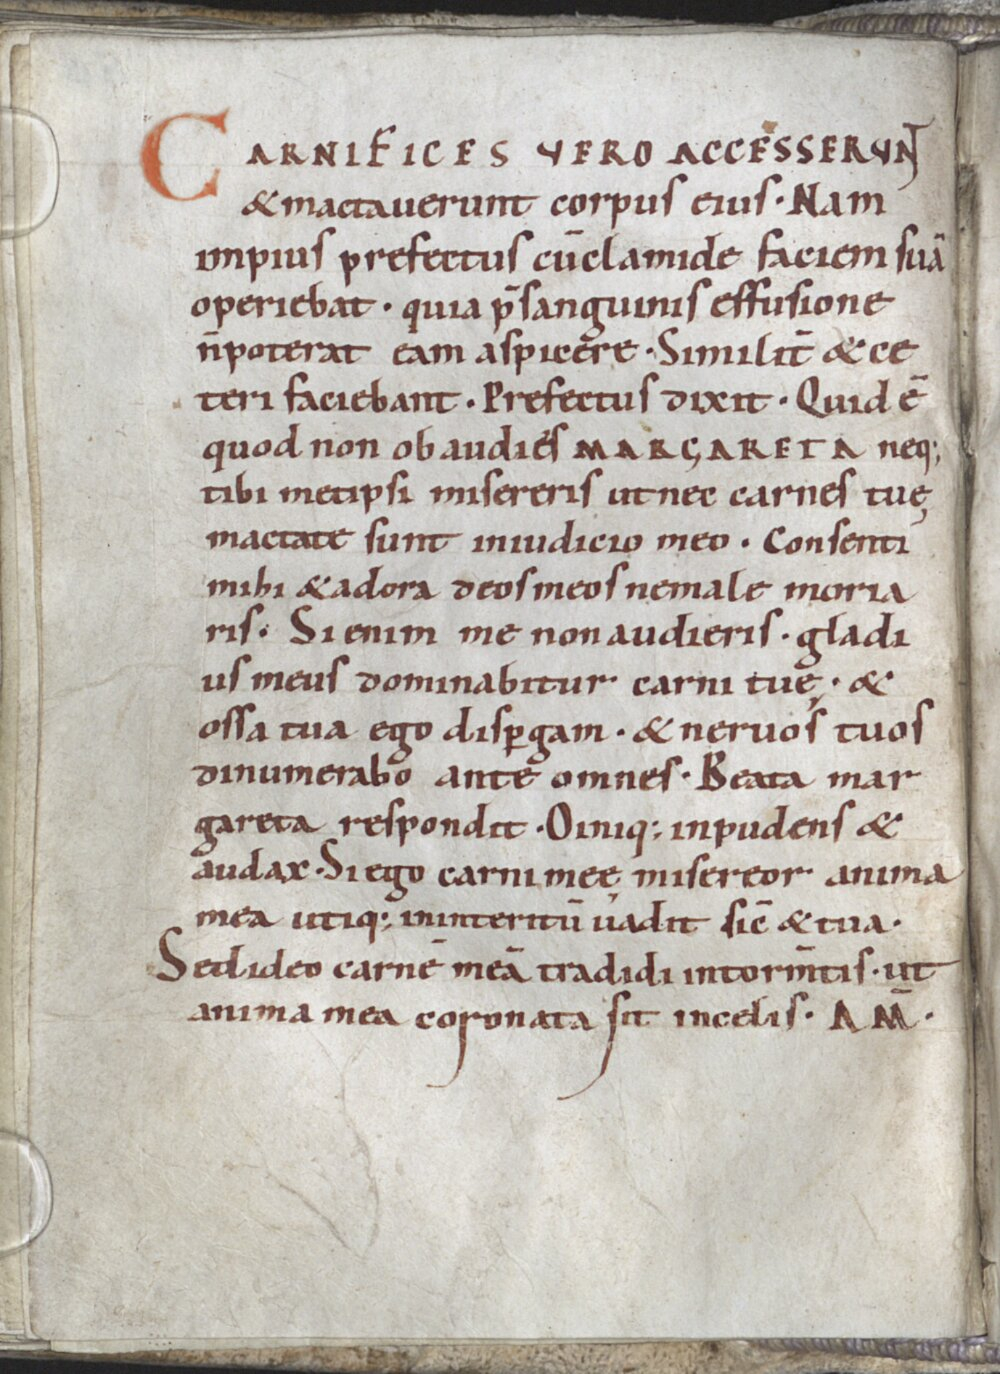 CARNIFICES VERO ACCESSERUNT
&mactauerunt corpus eius· Nam
impius prefectus cūclamide faciem suā
operiebat · quia p̄sanguinis effusione
n̄poterat eam aspicere · Similit̄ & ce
teri faciebant · Prefectus dixit · Quid ē
quod non obaudies MARGARETA neq;
tibi metipsi misereris utnec carnes tuę
mactate sunt iniudicio meo · Consenti
mihi &adora deosmeos nemale moria
ris · Si enim me non audieris · gladi
us meus dominabitur carni tuę · &
ossa tua ego disꝑgam · & neruos tuos
dinumerabo ante omnes · Beata mar
gareta respondit · Oiniq; inpudens &
audax · Si ego carni meę misereor anima
mea utiq; ininteritū uadit sic̄ & tua ·
Sed ideo carnē meā tradidi intorm̄tis · ut
anima mea coronata sit incelis · AM̄ ·